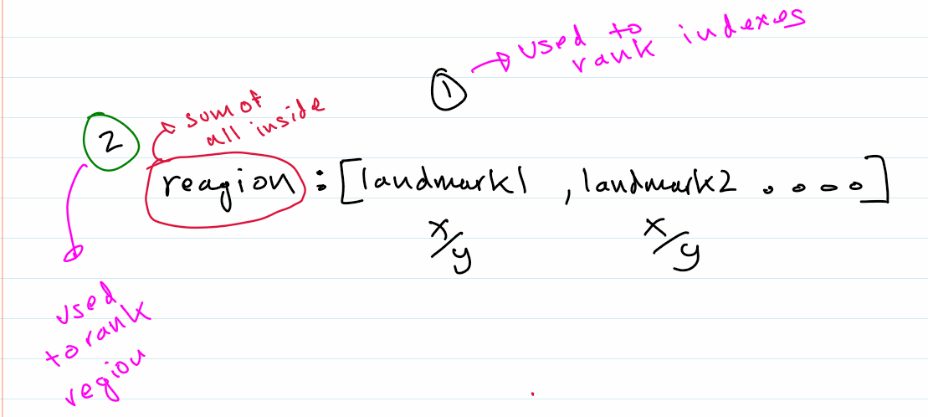 ① used to
rank indexes
sum of
all inside
2
reagion : [landmark1 , landmark2 ....]
x/y x/y
used
to rank
region